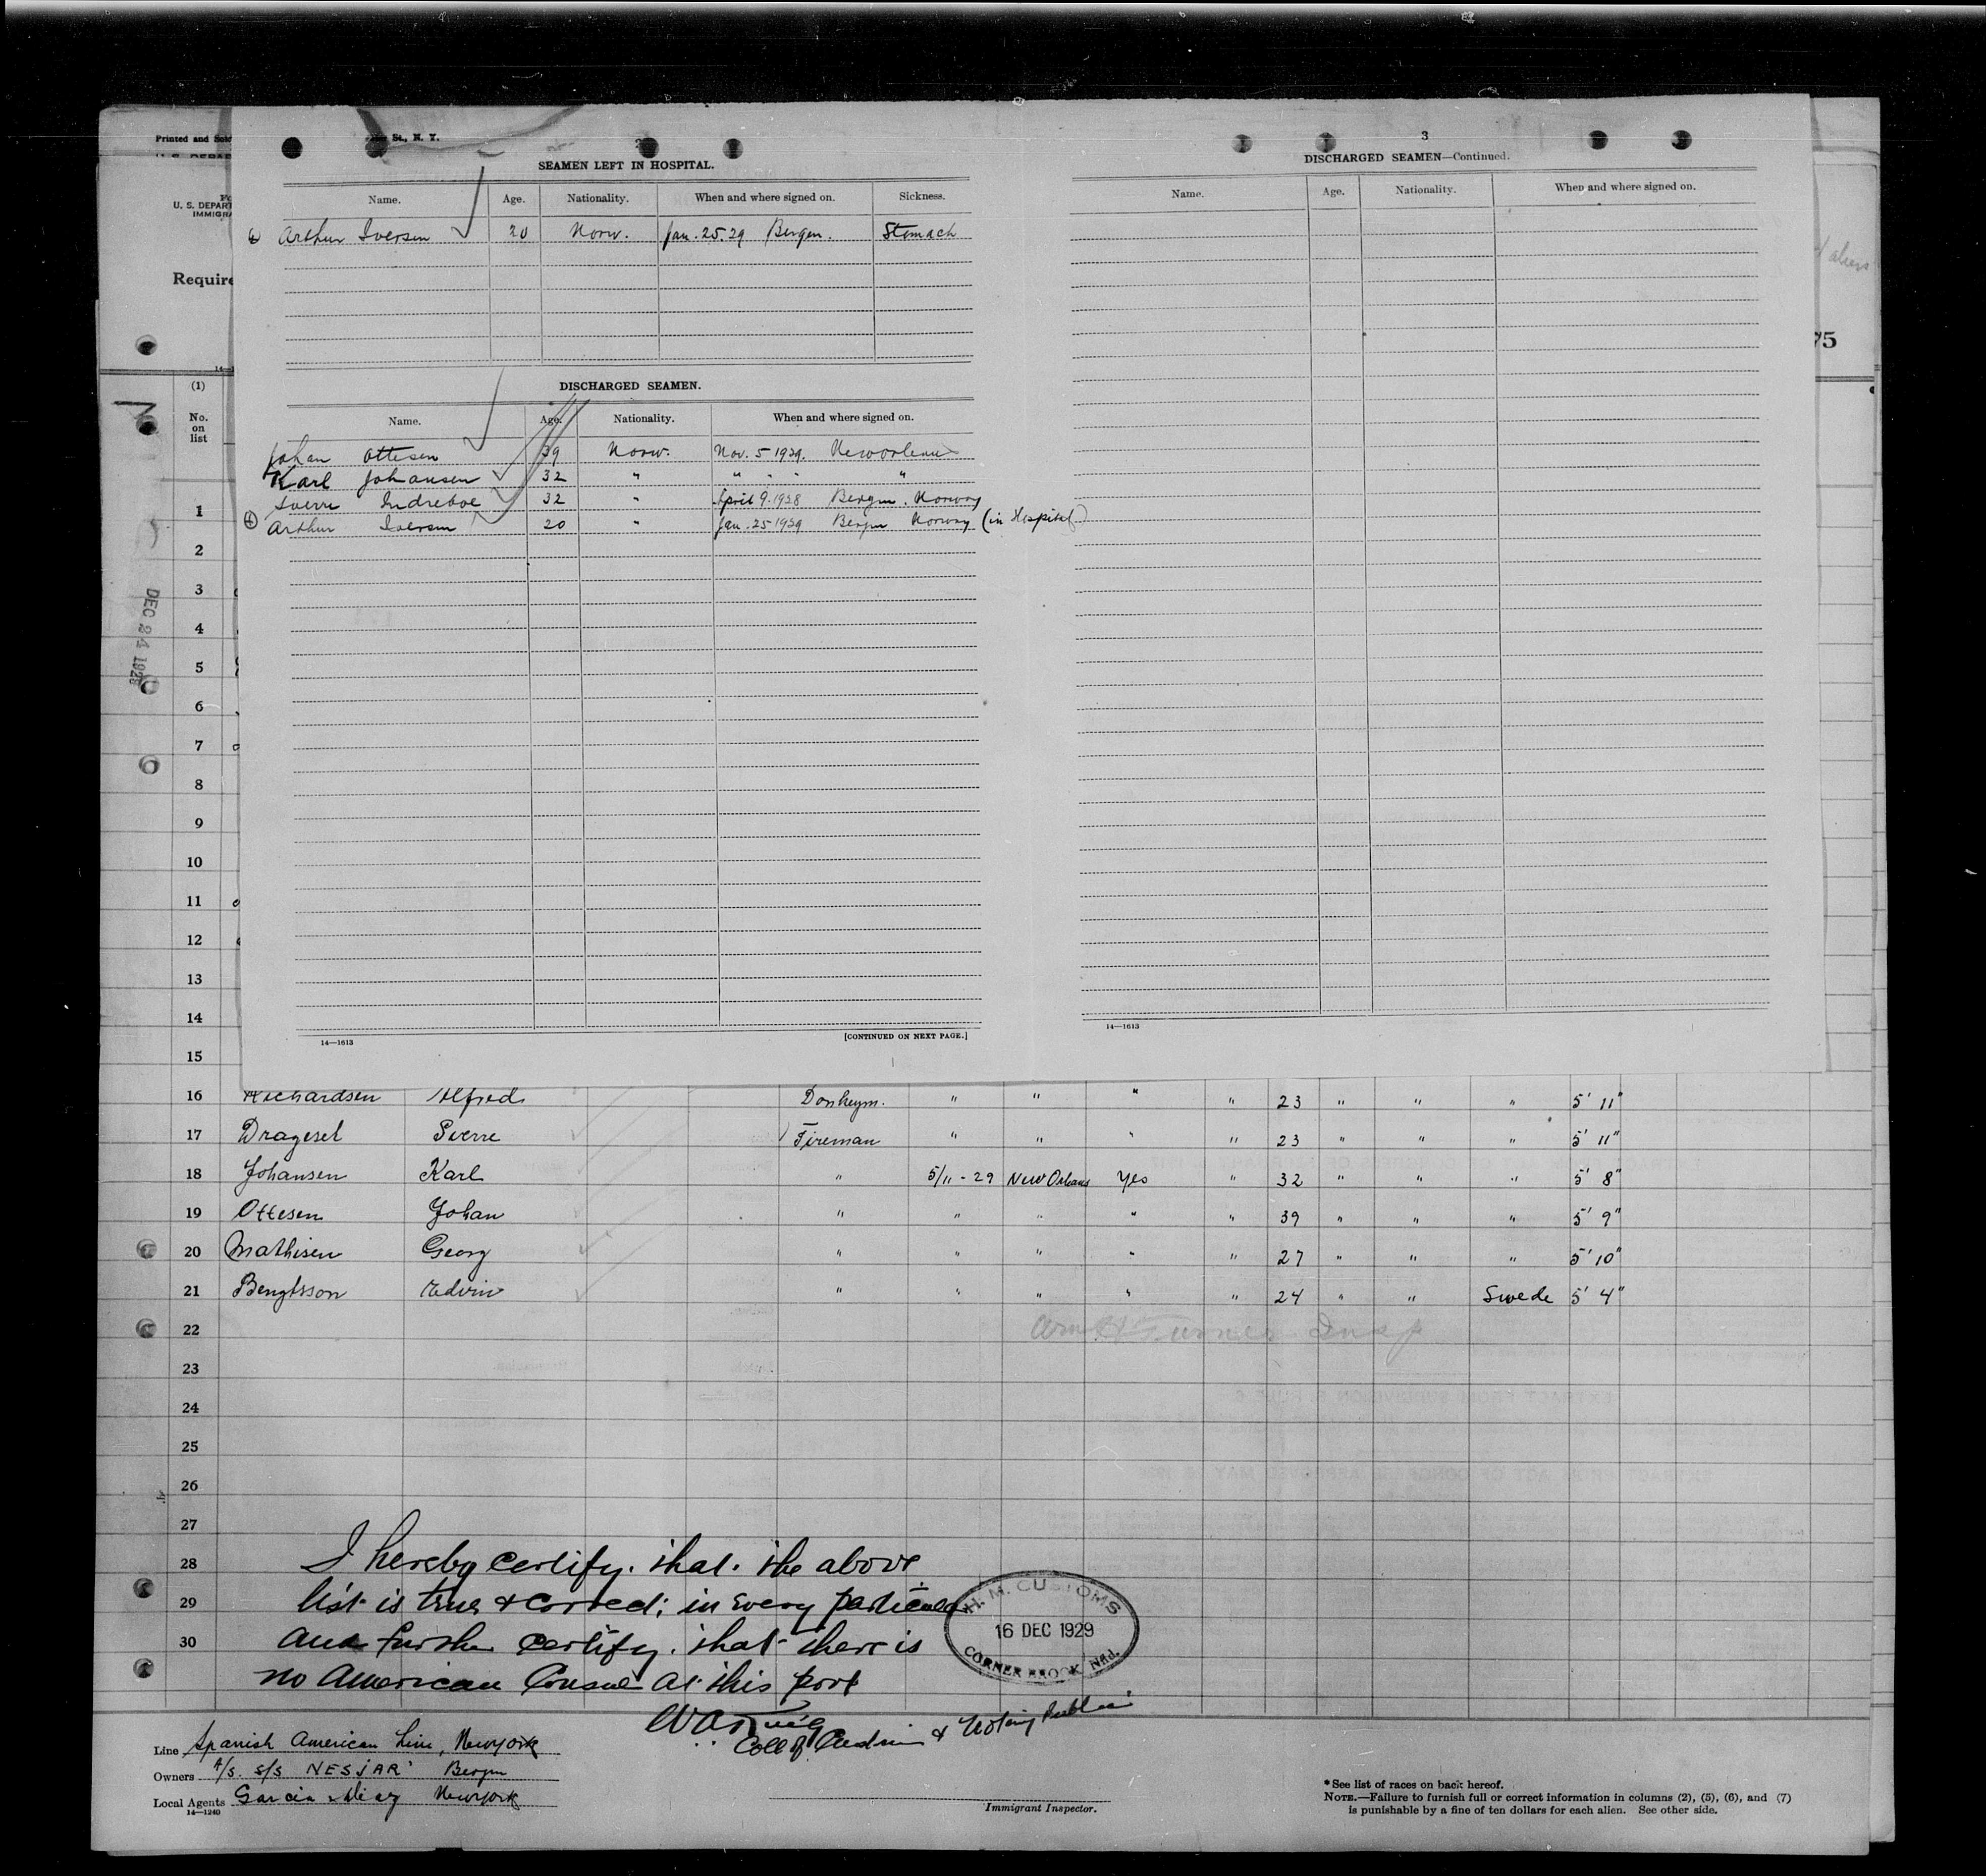 Printed and Sold
St., N. Y.
U. S. DEPART
IMMIGRA
Require
75
aliens
2
SEAMEN LEFT IN HOSPITAL.
Name. Age. Nationality. When and where signed on. Sickness.
Arthur Iversen 20 Norw. Jan. 25. 29 Bergen. Stomach
DISCHARGED SEAMEN.
Name. Age. Nationality. When and where signed on.
Johan Ottesen 39 Norw. Nov. 5 1929. Neworleans
Karl Johansen 32 " " " " "
Sverre Indreboe 32 " April 9. 1928 Bergen. Norway
Arthur Iversen 20 " Jan. 25 1929 Bergen Norway (in Hospital)
14—1613 [CONTINUED ON NEXT PAGE.]
3
DISCHARGED SEAMEN—Continued.
Name. Age. Nationality. When and where signed on.
14—1613
(1)
No.
on
list
1
2
3
4
5
6
7
8
9
10
11
12
13
14
15
DEC 24 1929
16 Richardsen Alfred Donkeym. " " " " 23 " " " 5' 11"
17 Drageset Sverre Fireman " " " " 23 " " " 5' 11"
18 Johansen Karl " 5/11 - 29 New Orleans Yes " 32 " " " 5' 8"
19 Ottesen Johan " " " " " 39 " " " 5' 9"
20 Mathisen Georg " " " " " 27 " " " 5' 10"
21 Bengtsson Edvin " " " " " 24 " " Swede 5' 4"
22 Turner Insp
23
24
25
26
27
28
29
30
I hereby certify. that. the above
list is true & correct; in every particular
and further certify. that there is
no American Consul at this port
H. M. CUSTOMS
16 DEC 1929
CORNER BROOK Nfld.
& Notary Public
Line Spanish American Line, Newyork
Owners A/S. S/S NESJAR' Bergen
Local Agents Garcia & Diaz Newyork
14—1240
Immigrant Inspector.
* See list of races on back hereof.
NOTE.—Failure to furnish full or correct information in columns (2), (5), (6), and (7)
is punishable by a fine of ten dollars for each alien. See other side.